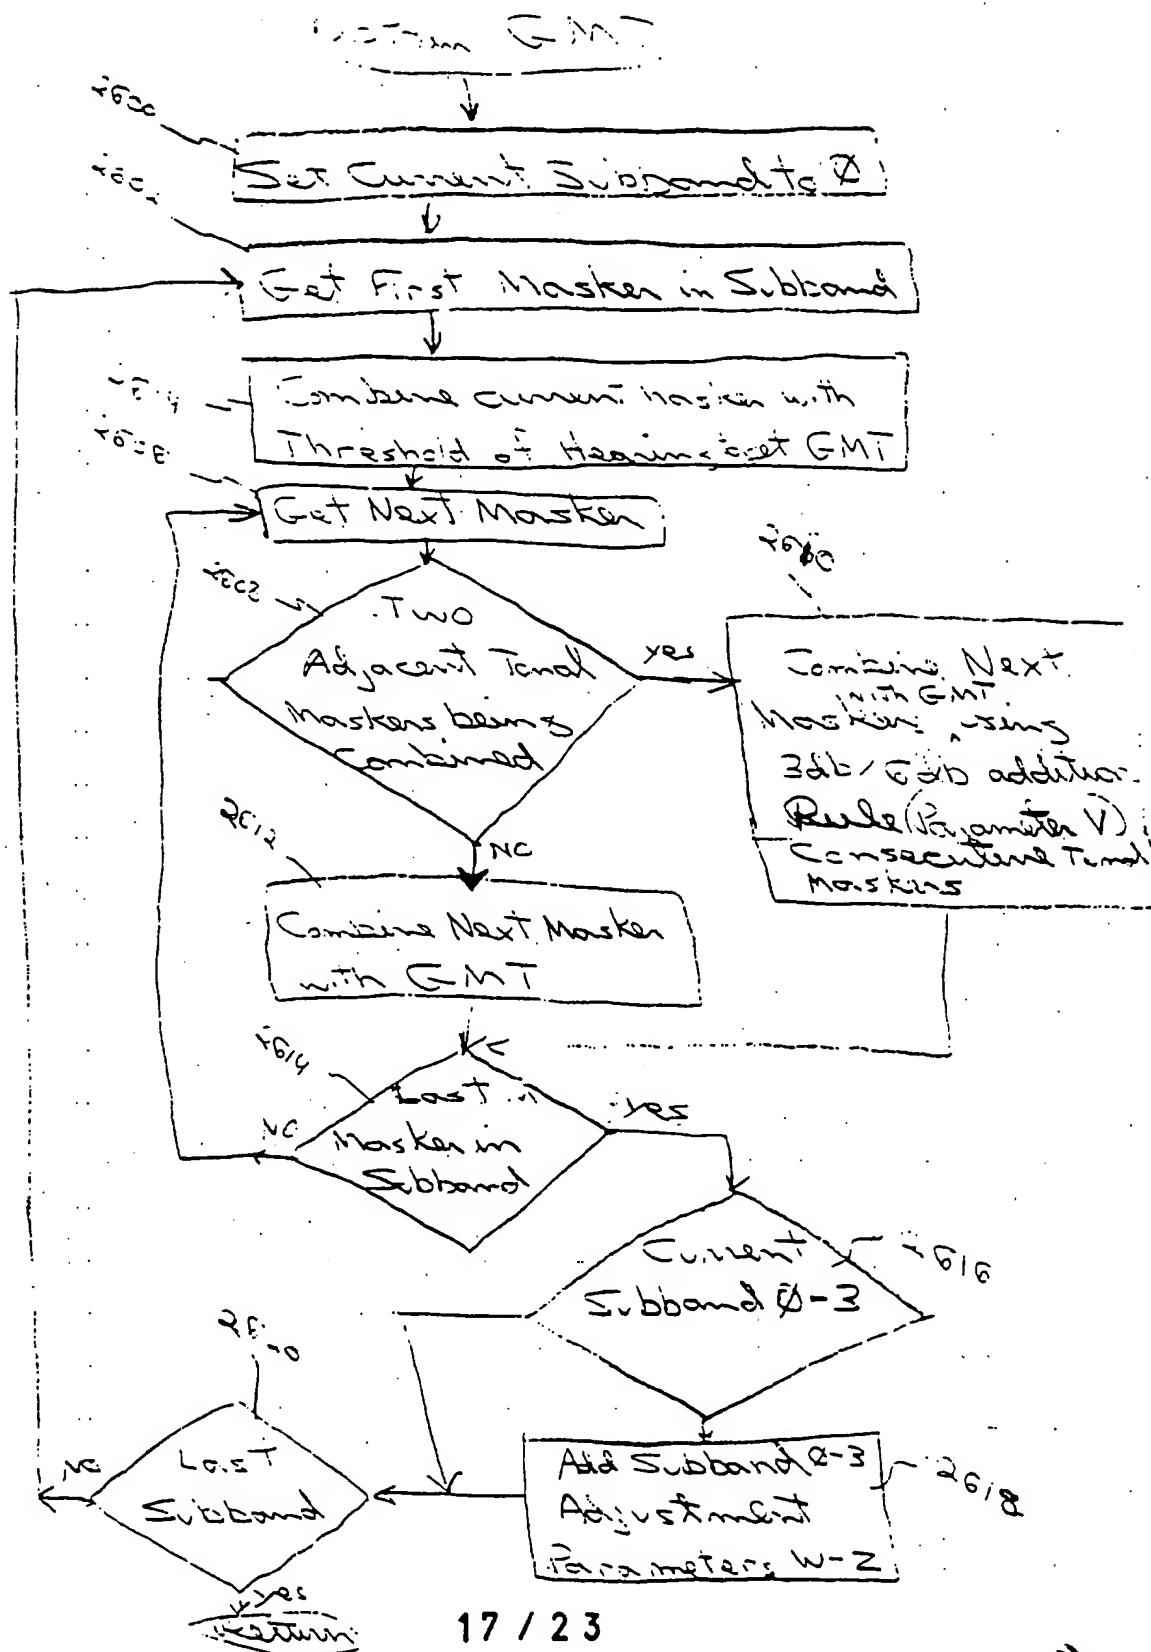 GMT
Set Current Subband to Ø
Get First Masker in Subband
Combine current masker with
Threshold of Hearing & get GMT
Get Next Masker
Two
Adjacent Tonal
Maskers being
Combined
yes
Combine Next
with GMT
Masker ^ using
3db/6db addition
Rule (Parameter V)
Consecutive Tonal
Maskers
2612
NO
Combine Next Masker
with GMT
2614
Last
Masker in
Subband
yes
NO
Current
Subband Ø-3
2616
Add Subband Ø-3
Adjustment
Parameters W-Z
2618
Last
Subband
NO
yes
Return
17/23